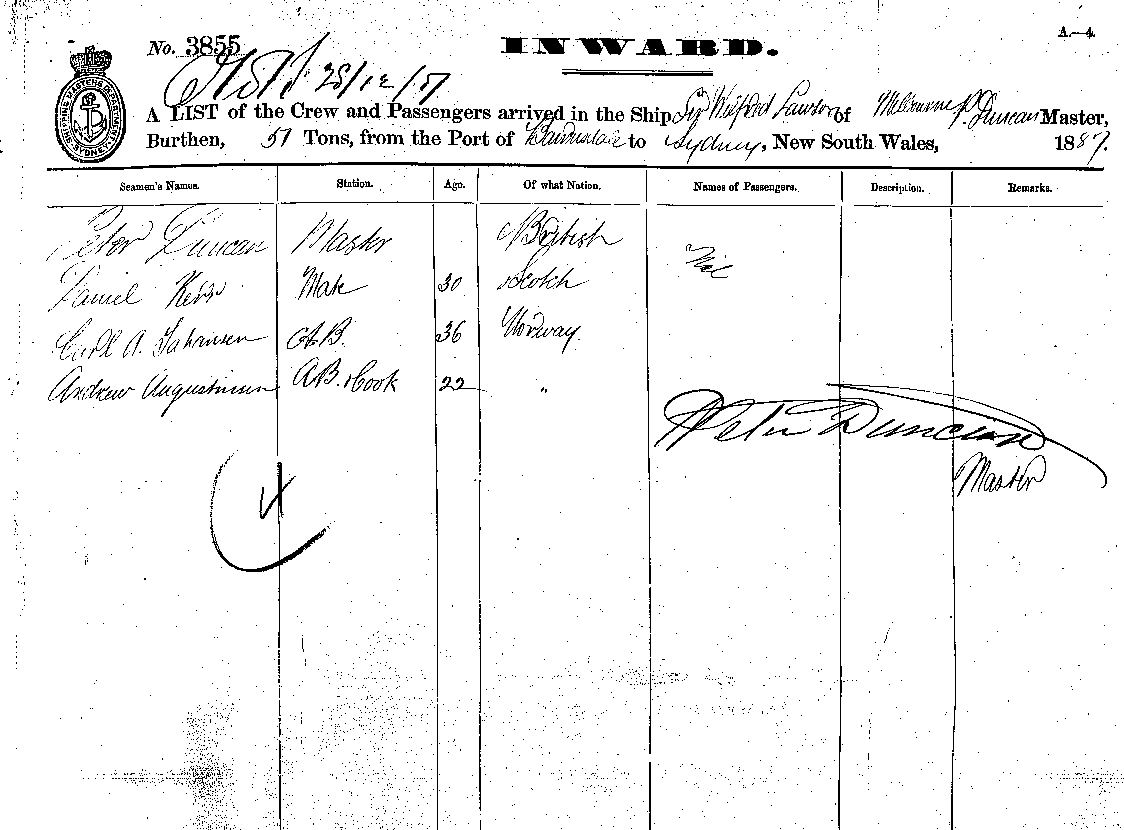 A.—4.
No. 3855 INWARD.
28/12/87
SHIPPING MASTERS DEPARTMENT SYDNEY
A LIST of the Crew and Passengers arrived in the Ship Sir Wilfred Lawson of Melbourne P. Duncan Master,
Burthen, 51 Tons, from the Port of Bairnsdale to Sydney, New South Wales, 1887.
Seamen's Names. Station. Age. Of what Nation. Names of Passengers. Description. Remarks.
Peter Duncan Master British Nil
Daniel Kerr Mate 30 Scotch
Carl A. A.B. 36 Norway
Andrew Augustinsen A.B. & Cook 22 "
Peter Duncan
Master
4